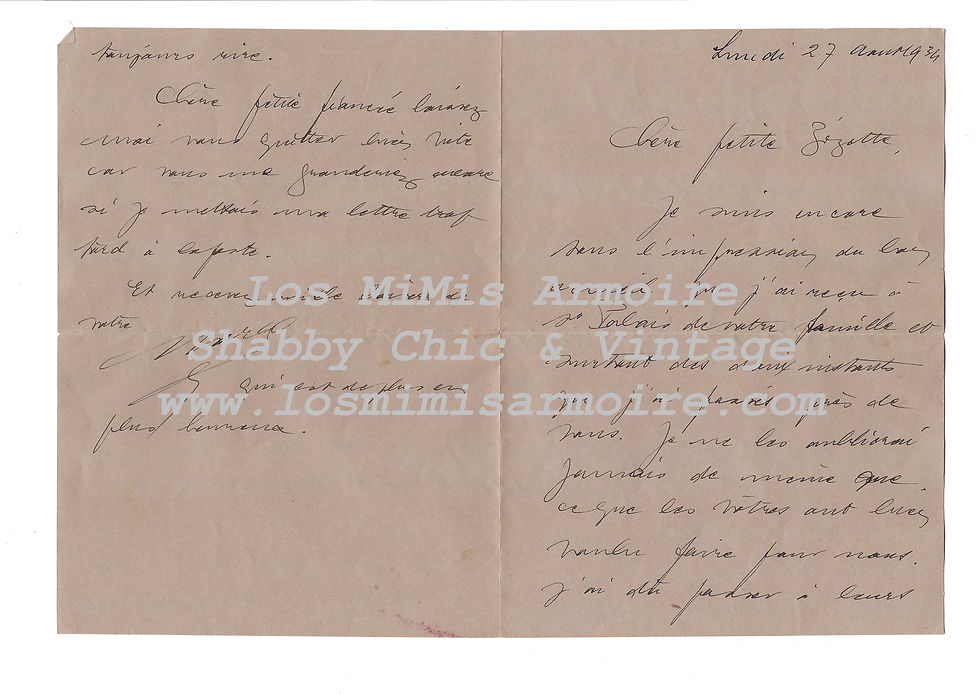 toujours rire.
Chère petite fiancée laissez
moi vous quitter bien vite
car vous me gronderiez encore
si je mettais ma lettre trop
tard à la poste.
Et recevez mille baisers de
votre
qui est de plus en
plus heureux.
Lundi 27 Aout 1934
Chère petite Zézette,
Je suis encore
sous l'impression du bon
accueil que j'ai reçu à
St Palais de votre famille et
surtout des doux instants
que j'ai passés près de
vous. Je ne les oublierai
jamais de même que
ce que les vôtres ont bien
voulu faire pour nous.
j'ai dû passer à leurs
Los MiMis Armoire
Shabby Chic & Vintage
www.losmimisarmoire.com